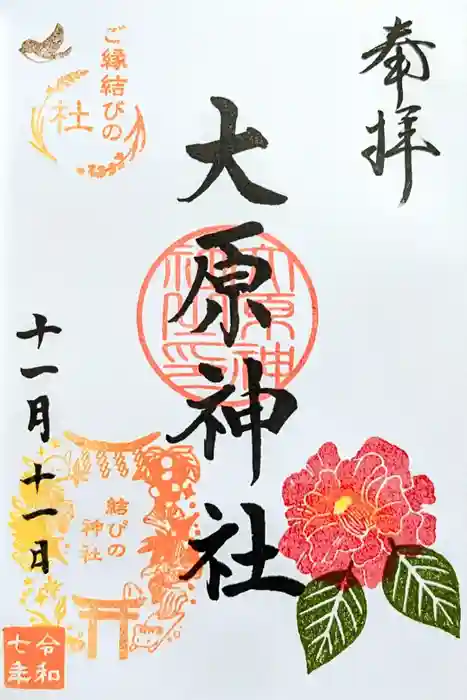 奉拝
大原神社
大原神社印
ご縁結びの
社
十一月十一日
結びの
神社
令和
七年